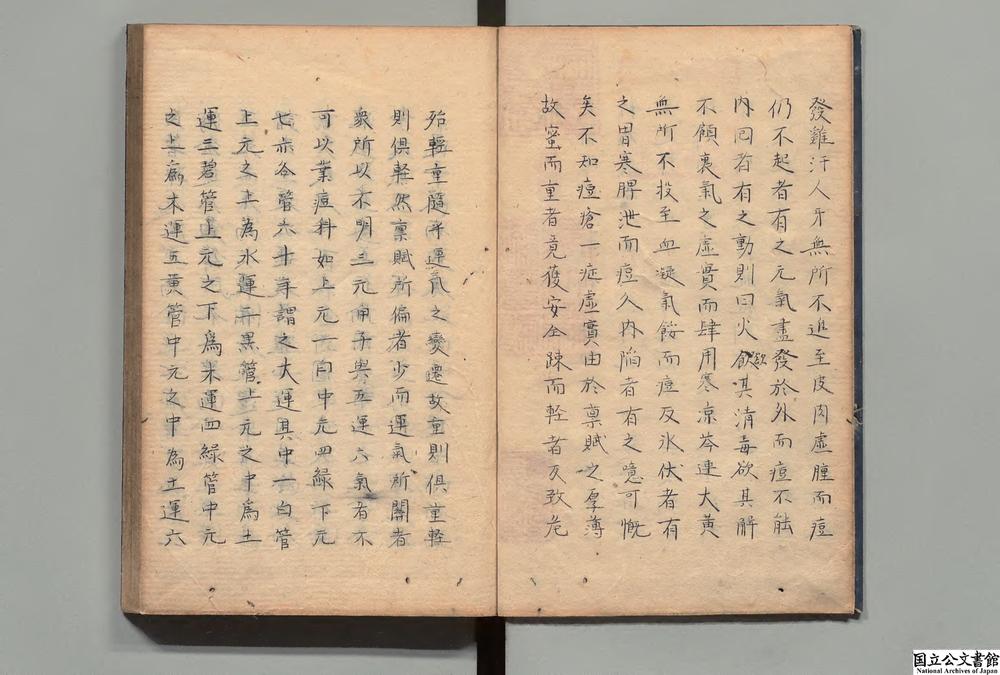 發雞汁人牙無所不進至皮肉虛腫而痘
仍不起者有之元氣盡發於外而痘不能
內囘者有之動則曰火飲欲其清毒欲其解
不顧裏氣之虛實而肆用寒凉芩連大黄
無所不投至血凝氣餒而痘反氷伏者有
之胃寒脾泄而痘入內陷者有之噫可慨
矣不知痘瘡一症虛實由於禀賦之厚薄
故蜜而重者竟獲安全踈而軽者反致危
殆輕重隨乎運氣之變遷故重則俱重輕
則俱軽然禀賦所偏者少而運氣所關者
衆所以不明三元甲子與五運六氣者不
可以業痘科如上元一白中元四緑下元
七赤各管六十年謂之大運其中一白管
上元之上為水運二黒管上元之中爲土
運三碧管上元之下爲木運四緑管中元
之上爲木運五黄管中元之中為土運六
国立公文書館
National Archives of Japan